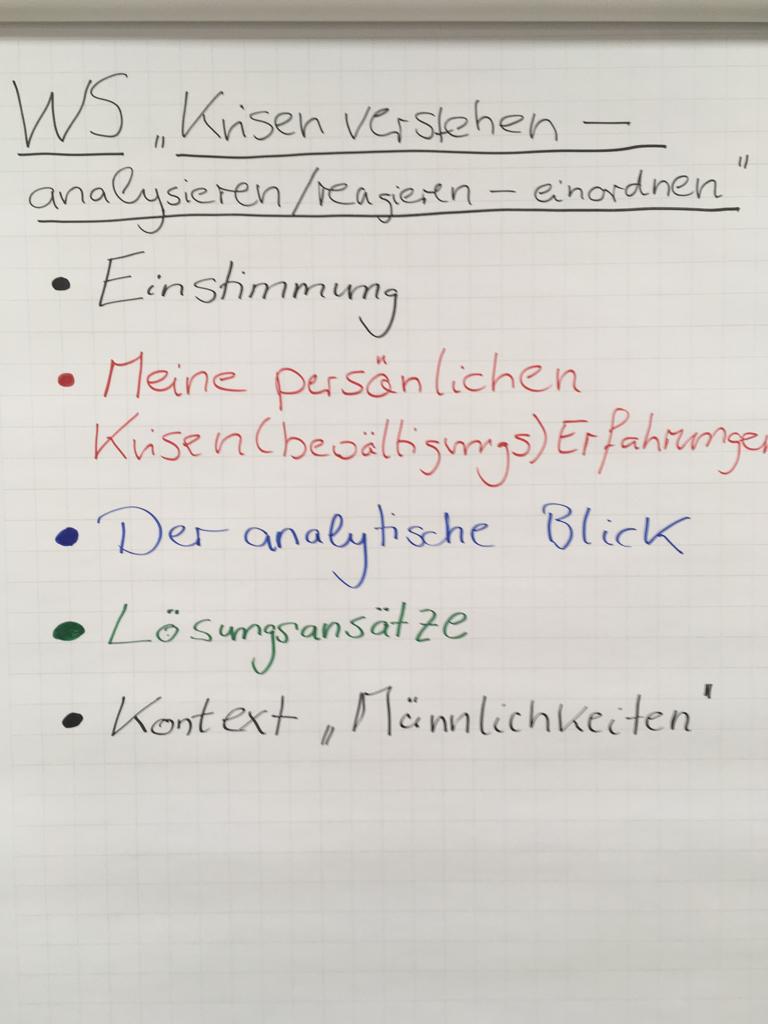 WS „Krisen verstehen –
analysieren/reagieren – einordnen"
• Einstimmung
• Meine persönlichen
Krisen(bewältigungs)Erfahrungen
• Der analytische Blick
• Lösungsansätze
• Kontext „Männlichkeiten"